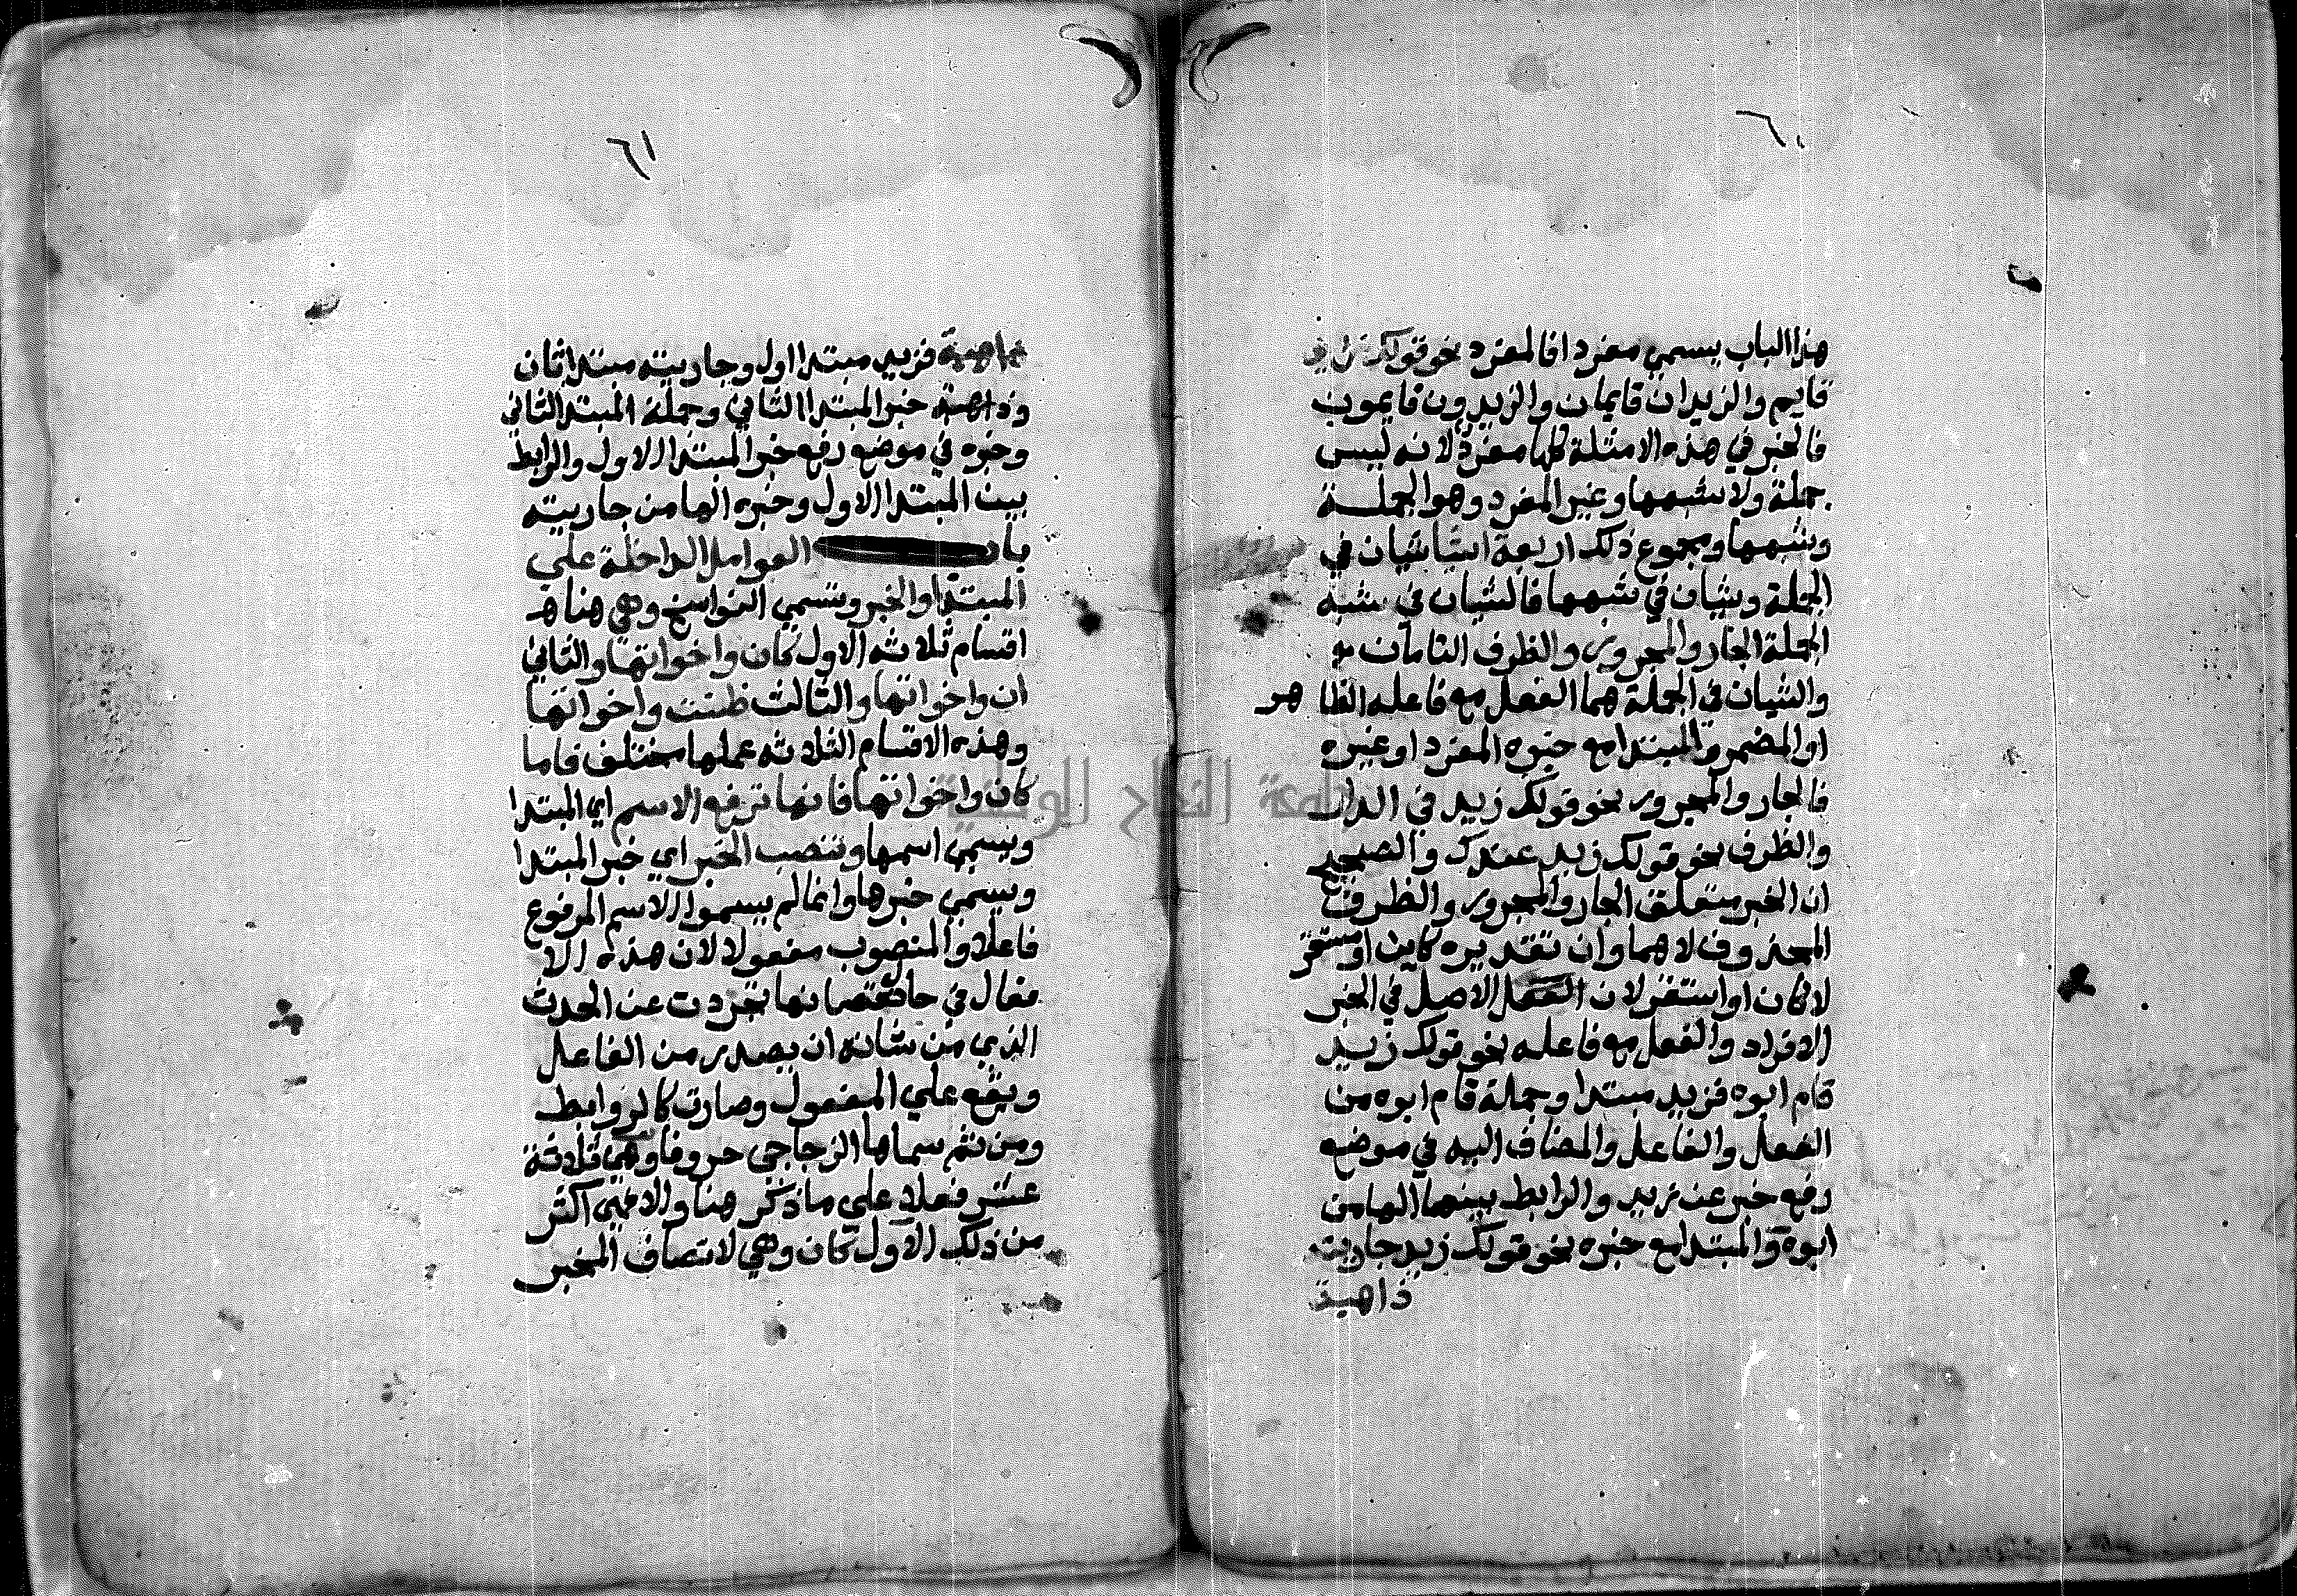 ٦٠
هذا الباب يسمي مفردا فالمفرد نحو قولك زيد
قايم والزيدان قايمان والزيدون قايمون
فالخبر في هذه الامثلة كلها مفرد لانه ليس
جملة ولا شبهها وغير المفرد وهو الجملة
وشبهها ومجموع ذلك اربعة اشيا شيان في
الجملة وشيان في شبهها فالشيان في شبه
الجملة الجار والمجرور والظرف التامان
والشيان في الجملة هما الفعل مع فاعله الظاهر
او المضمر والمبتدا مع خبره المفرد او غيره
فالجار والمجرور نحو قولك زيد في الدار
والظرف نحو قولك زيد عندك والصحيح
ان الخبر متعلق الجار والمجرور والظرف
المحذوف لا هما وان تقديره كاين او مستقر
لا كان او استقر لان الاصل في الخبر
الافراد والفعل مع فاعله نحو قولك زيد
قام ابوه فزيد مبتدا وجملة قام ابوه من
الفعل والفاعل والمضاف اليه في موضع
رفع خبر عن زيد والرابط بينهما الها من
ابوه والمبتدا مع خبره نحو قولك زيد جاريته
ذاهبة
٦١
ذاهبة فزيد مبتدا اول وجاريته مبتدا ثان
وذاهبة خبر المبتدا الثاني وجملة المبتدا الثاني
وخبره في موضع رفع خبر المبتدا الاول والرابط
بين المبتدا الاول وخبره الها من جاريته
باب العوامل الداخلة علي
المبتدا والخبر وتسمي النواسخ وهي هنا
اقسام ثلاثه الاول كان واخواتها والثاني
ان واخواتها والثالث ظننت واخواتها
وهذه الاقسام الثلاثه عملها مختلف فاما
كان واخواتها فانها ترفع الاسم اي المبتدا
ويسمي اسمها وتنصب الخبر اي خبر المبتدا
ويسمي خبرها وانما لم يسموا الاسم المرفوع
فاعلا والمنصوب مفعولا لان هذه الا
فعال في حال نقصانها تجردت عن الحدث
الذي من شانه ان يصدر من الفاعل
ويقع علي المفعول وصارت كالروابط
ومن ثم سماها الزجاجي حروفا وهي ثلاثة
عشر فعلا علي ما ذكر هنا والا فهي اكثر
من ذلك الاول كان وهي لاتصاف المخبر
جامعة النجاح الوطنية